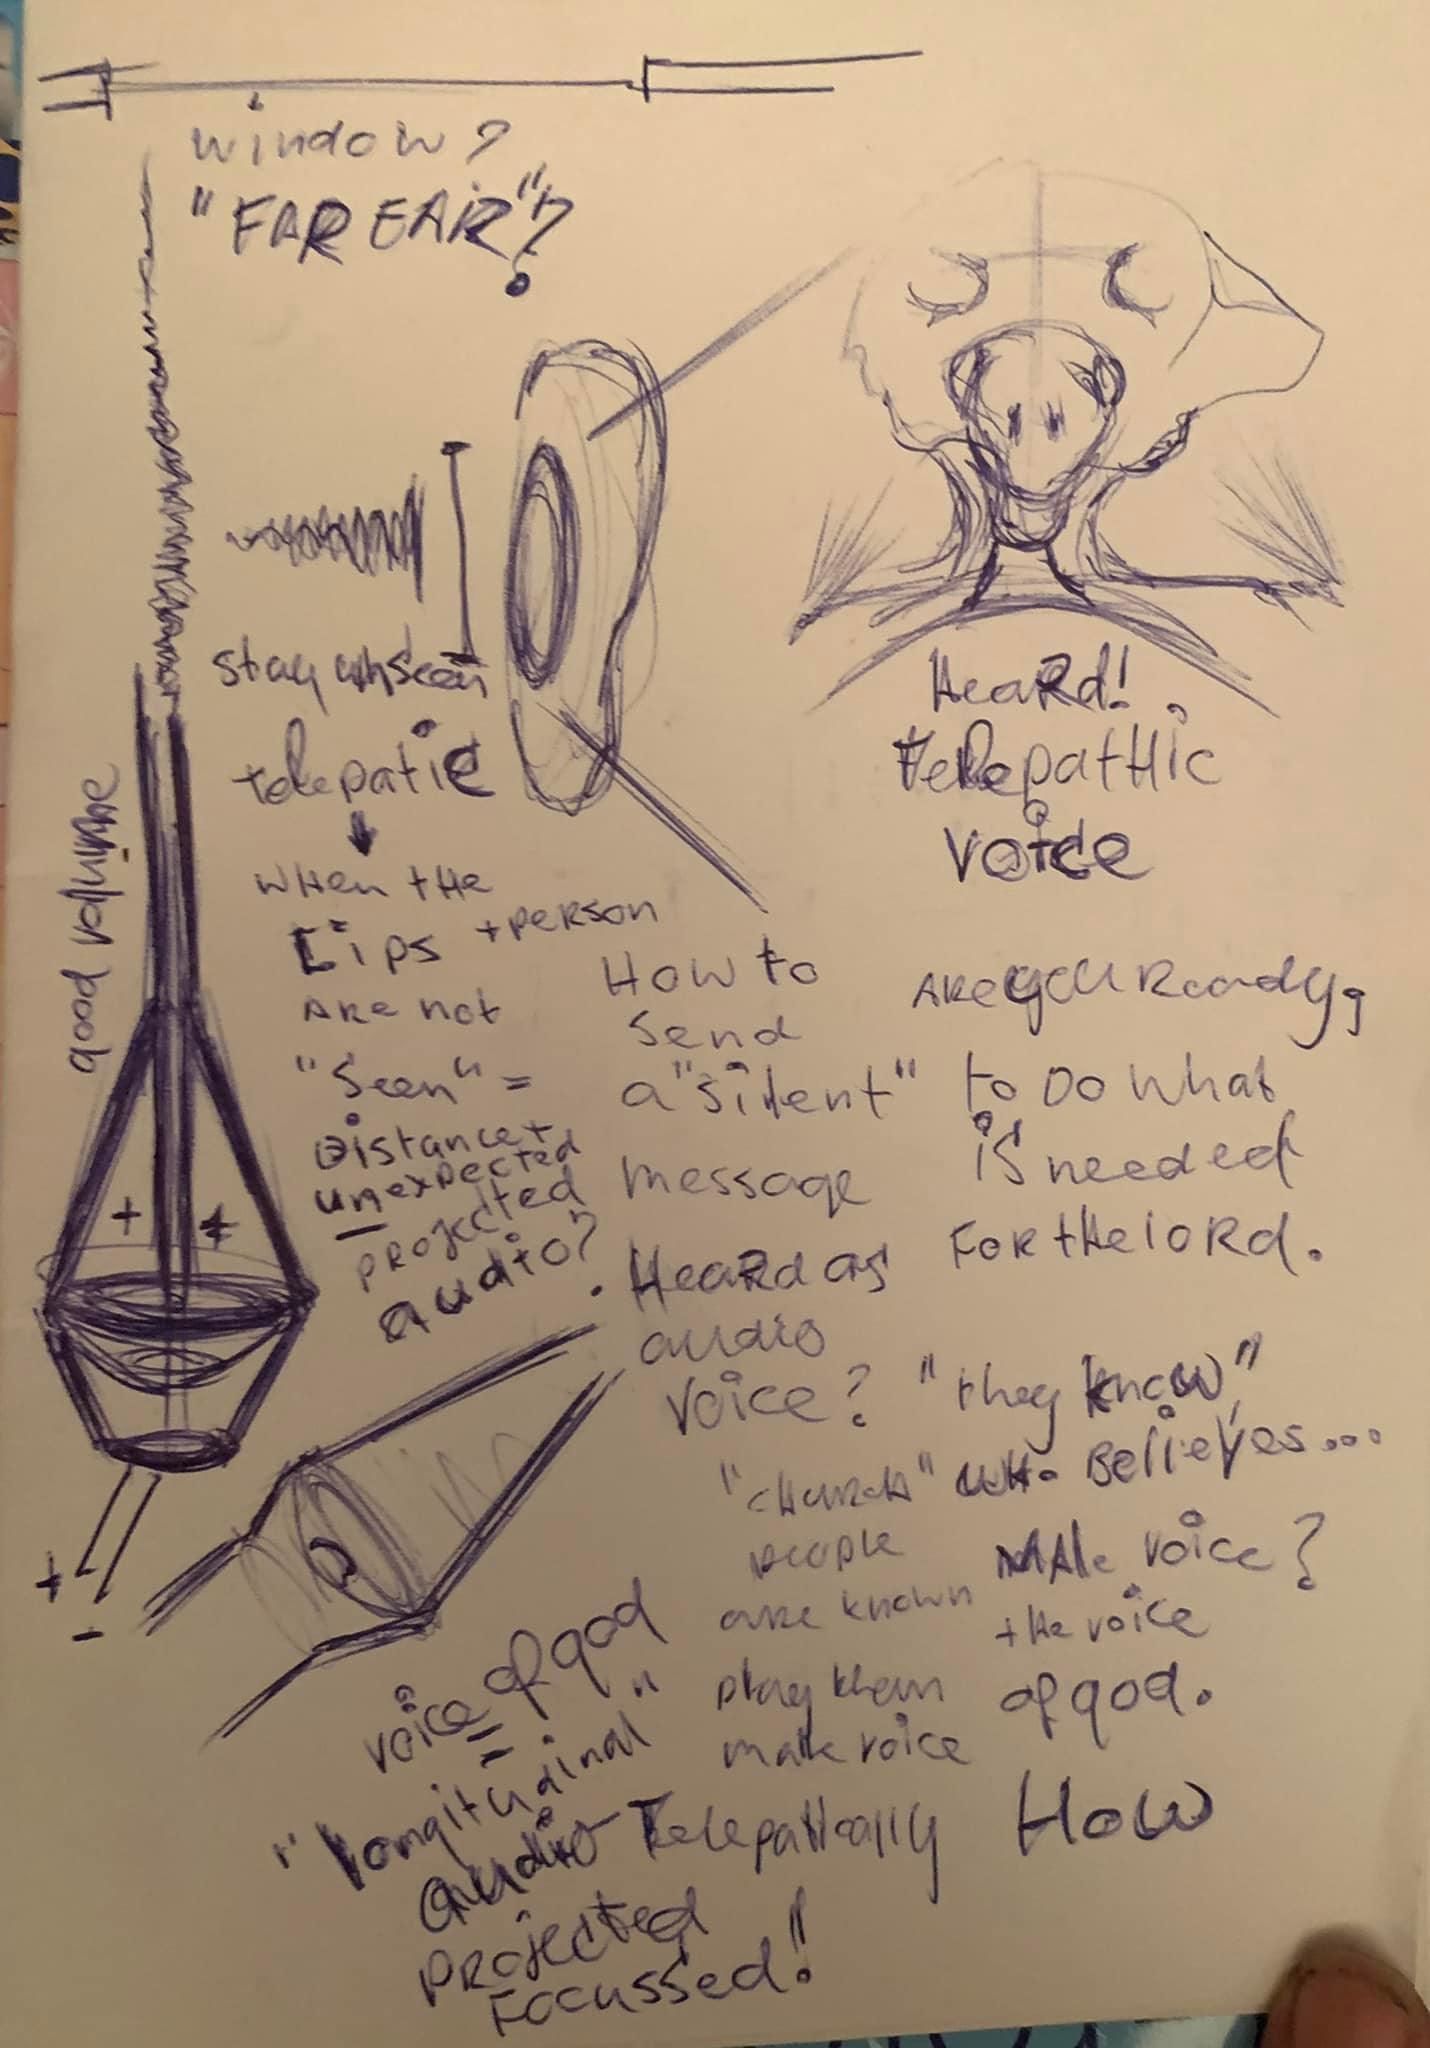 window?
"FAR EAR"?
good volume
stay unseen
telepatic
when the
Lips + person
are not
"Seen" =
Distance +
unexpected
projected
audio?
Heard!
Telepathic
voice
How to
send
a "silent"
message
Heard as
audio
voice?
Are you Ready,
to Do what
is needed
For the lord.
"they know"
who Believes...
"church"
people
are known
play them
male voice
Telepathically
Male voice?
the voice
of god.
How
+ +
+
-
voice of god
=
"Longitudinal"
audio
projected
Focussed!